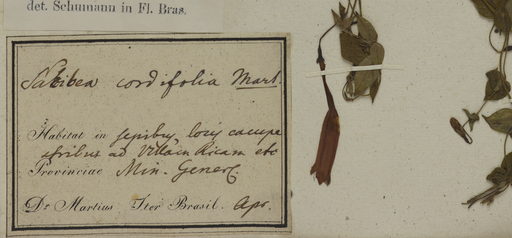 det. Schumann in Fl. Bras.
Sabicea cordifolia Mart.
Habitat in sepibus, locis campe
stribus ad Villam Ricam etc
Provinciae Min. Generæ.
Dr. Martius Iter Brasil. Apr.